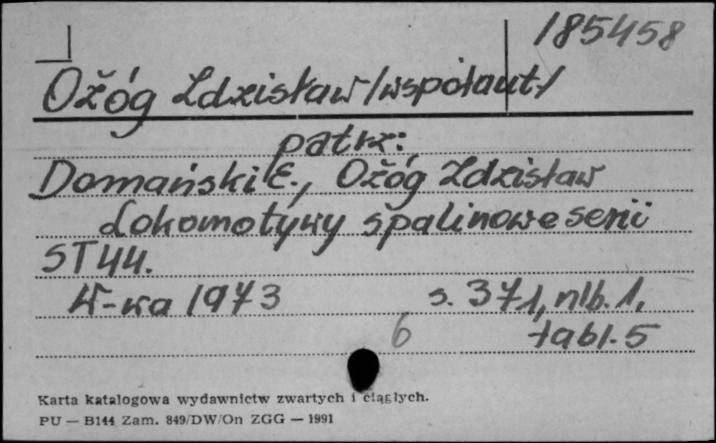 185458
Ożóg Zdzisław /współaut./
patrz:
Domański E., Ożóg Zdzisław
Lokomotywy spalinowe serii
ST44.
W-wa 1973 s. 371, nlb. 1,
6 tabl. 5
Karta katalogowa wydawnictw zwartych i ciągłych.
PU — B144 Zam. 849/DW/On ZGG — 1991